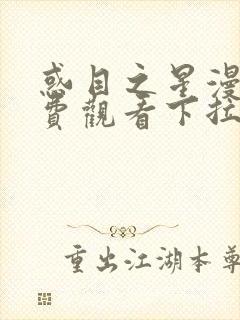 惑目之星漫
費觀看下拉
重出江湖本尊